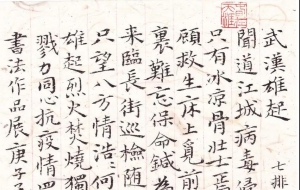 武漢雄起 七排
聞道江城病毒
只有冰涼骨壯士
顧救生一床上覓前
裏難忘保命鍼為
来臨長街巡檢随
只望八方情浩何
雄起烈火焚燒獨
戮力同心抗疫情
書法作品展庚子